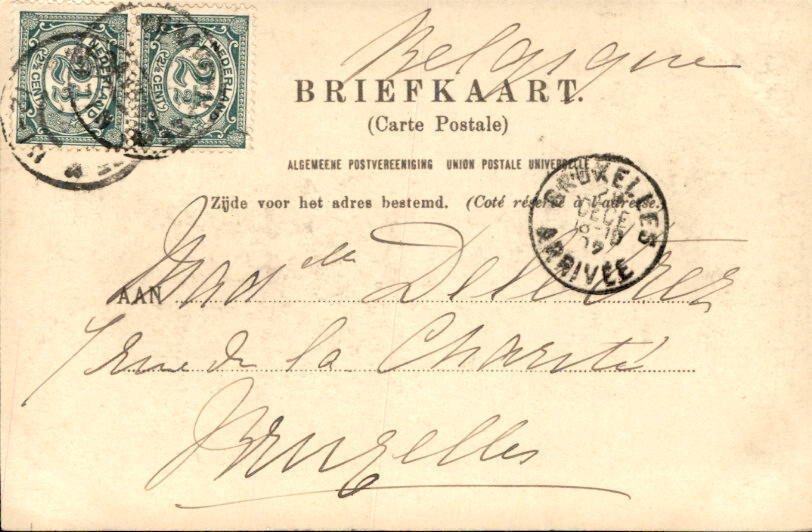 Belgique
NEDERLAND
2½
2½ CENT
NEDERLAND
2½
2½ CENT
BRIEFKAART.
(Carte Postale)
ALGEMEENE POSTVEREENIGING UNION POSTALE UNIVERSELLE
Zijde voor het adres bestemd. (Coté réservé à l'adresse.)
BRUXELLES
DECE
18-19
02
ARRIVÉE
AAN
rue de la Charité
Bruxelles